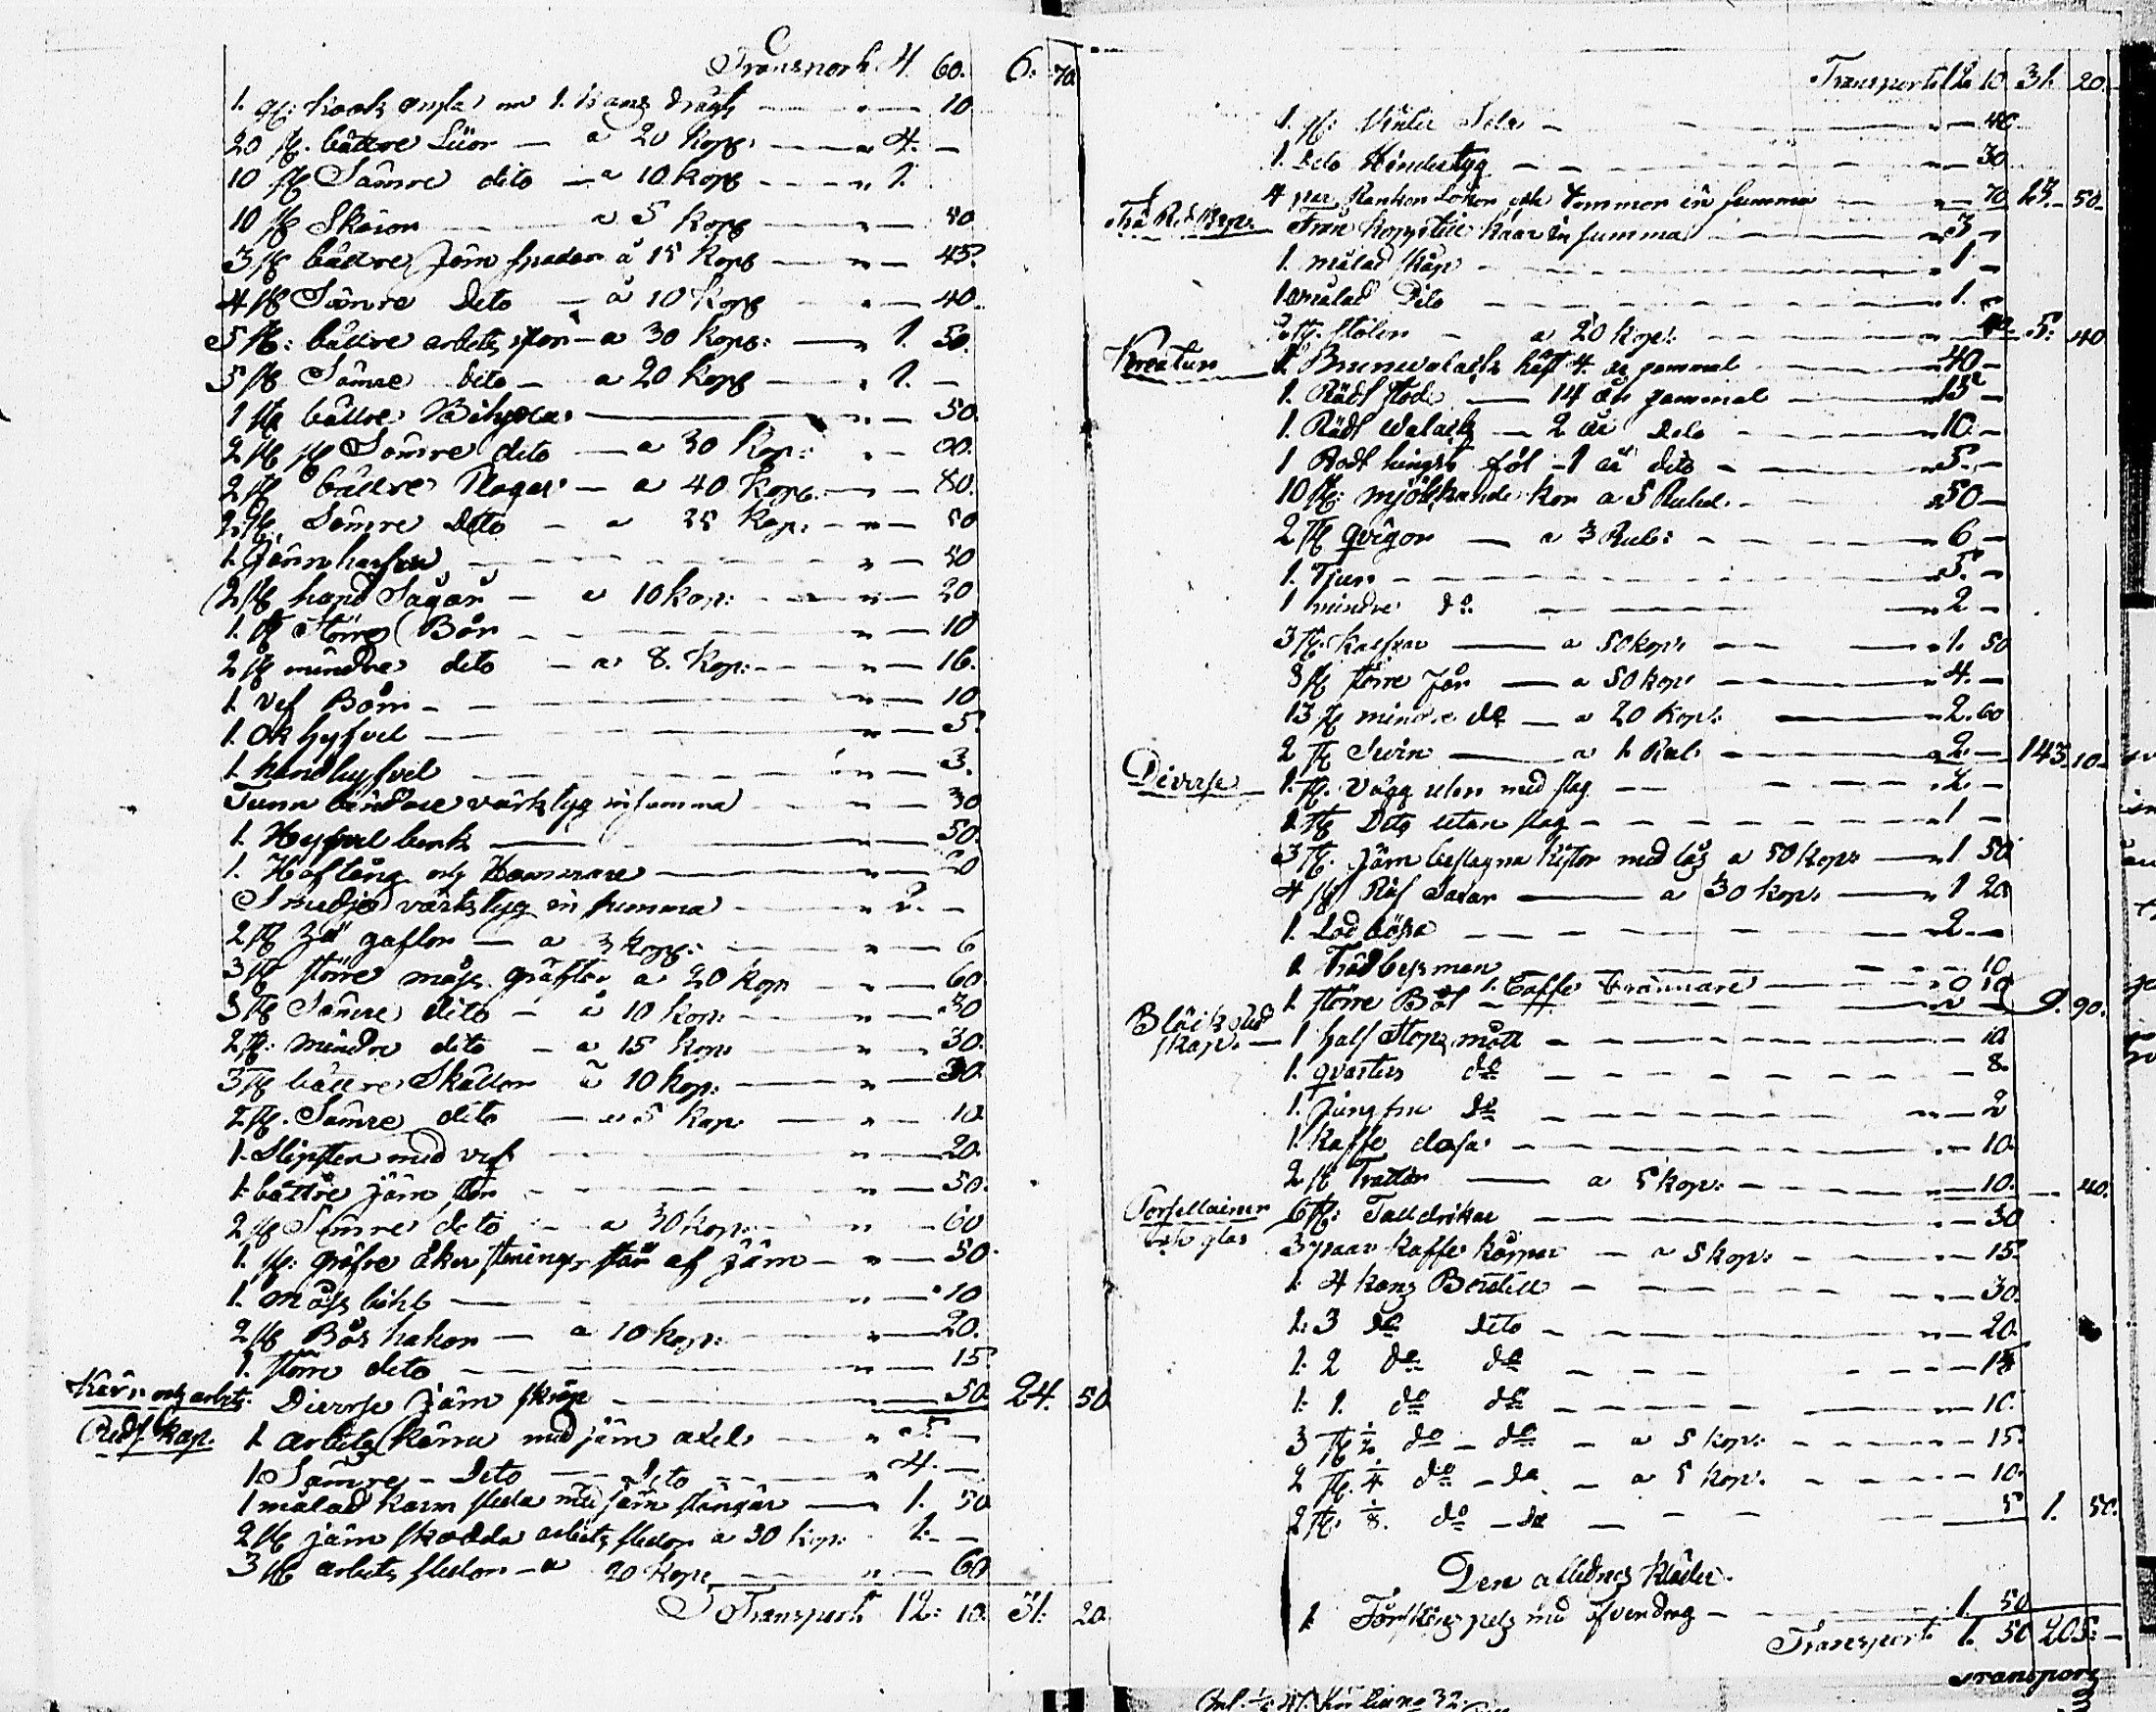 Transport 4. 60. 6. 70.
1. st: krok 10
20 st. bättre Liior - a 20 kop: 4. -
10 st Sämre dito - a 10 kop 1.
10 st Skäror a 5 kop 50
3 st bättre Järn spador á 15 kop 45.
4 st Sämre Dito - á 10 kop 40.
5 st: bättre arbets yxor - a 30 kop: 1. 50.
5 st Sämre dito - a 20 kop 1. -
1 st bättre Bilyxa 50.
2 st st Sämre dito - a 30 Kop: 60.
2 st bättre Plogar - a 40 Kop. 80.
2 st. Sämre Dito - a 25 Kop. 50
1. Järn harfva 50
2 st hand Sågar - a 10 kop: 20
1. st Större Bår 10
2 st mindre dito - a 8. Kop: 16.
1. Vef Bårr 10
1. Ok hyfvel 5.
1. handhyfvel 3.
Tunn bindare värktyg in summa 30
1. Hyfvel benk 50.
1. Hoftång och Hammare 20
Smedje värkstyg in summa 2. -
2 st gaflor - a 3 kop: 6
3 st större gräftor a 20 kop 60
3 st Sämre dito - á 10 kop: 30
2 st: mindre dito - a 15 kop 30.
3 st bättre Skållor á 10 kop: 30.
2 st. Sämre dito - a 5 kop 10
1. Slipsten med vef 20.
1. bättre järn stör 50.
2 st Sämre dito - a 30 kop: 60
1. st: gröfre åker stenings stör af järn 50.
1. 10
2 st Bås hakor - a 10 kop: 20.
1. större dito 15.
Diverse järn skrap 50. 24. 50
Kör- och arbets
Redskap. 1 arbets kärra med järn axel 5 -
1. Sämre - Dito - Dito 4. -
1 målad karm släda med järn stänger 1. 50
2 st järn skodda arbets slädor a 30 kop: 1. -
3 st arbets slädor - a 20 kop 60
Transport 12: 10. 31: 20.
Transport 12 10 31. 20.
1. st: 40
1. Dito Hindertyg 30
4 par Rankor Lokor och Tommor in summa 70 17. 50.
Trä Redskap. Trän kopstill kaar in summa 3 -
1. målad skåp 1 -
1 omålad Dito 1. -
2 st. stolar - a 20 kop: 40 5. 40
Kreatur 1 Brunwalack häst 4. år gammal 40 -
1. Rödt stod - 14 år gammal 15 -
1. Rödt Walack - 2 år Dito 10. -
1 Rödt hingst föl - 1 år dito 5. -
10 st: mjölkande kor a 5 Rubel. 50 -
2 st qvigor - a 3 Rub: 6 -
1. Tjur 5. -
1 mindre do 2 -
3 st. kalfvar - a 50 kop: 1. 50
8 st större Får - a 50 kop 4. -
13 st mindre do - a 20 kop: 2. 60
2 st Svin - a 1 Rub. 2. - 143. 10.
Diverse 1. st. Vägg uhr med slag 2. -
1 st Dito utan slag 1 -
3 st. järn beslagna kistor med lås a 50 kop 1 50
4 st Räf Saxar - a 30 kop. 1 20
1. Lod bössa 2. -
1 Träd besman 10
1. Caffe brännare 10
1 större Båt 2 - 9. 90.
Bläck red
skap. 1 half Stops mått 10
1. qvarters do 8.
1. jungfru do 2
1. kaffe dosa 10.
2 st Trattar - a 5 kop: 10. 40.
Porsellainer
och glas 6 st: Talldrikar 30
3 paar kaffe koppar - a 5 kop: 15.
1. 4 kanz Boutell 30.
1. 3 do dito 20.
1. 2 do do 15
1. 1. do do 10.
3 st ½ do - do - a 5 kop: 15.
2 st. ¼ do - do - a 5 kop. 10.
2 st. ⅛. do - do 5 1. 50.
Den aflednes kläder.
1. Fårskins pelz med öfverdrag 1. 50
Transport 1. 50 205. -
Transport